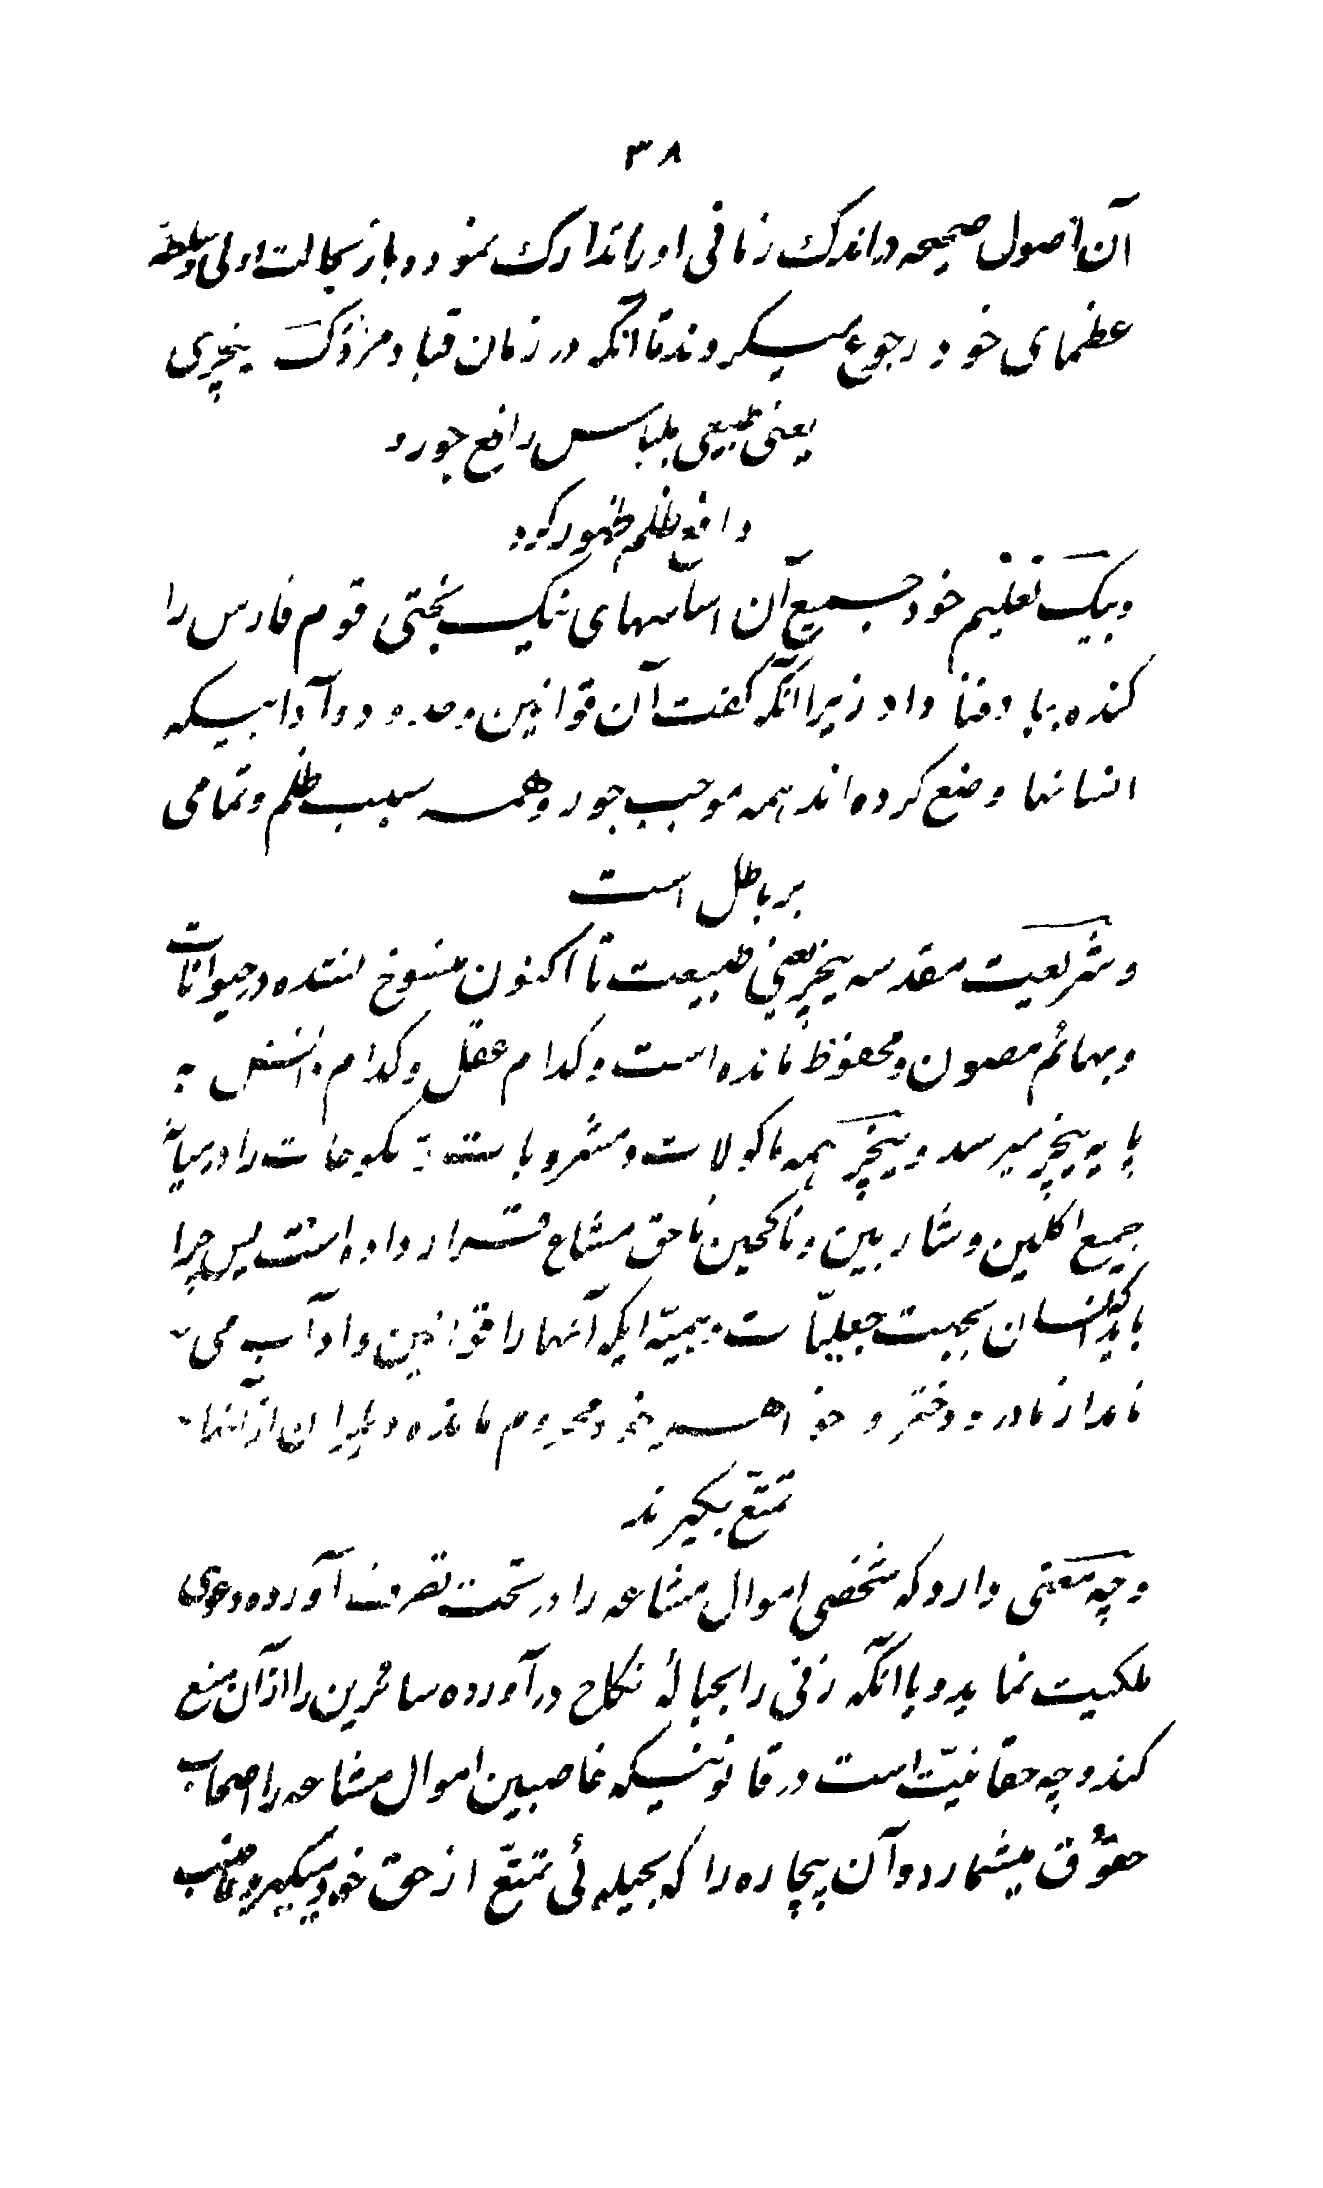 ۳۸
آن اصول صحیحه در اندک زمانی او را تدارک نموده و باز بحالت اولی و سلطهٔ
عظمای خود رجوع میکردند تا آنکه در زمان قباد مزدک نیچری
یعنی طبیعی بلباس رافع جور و
دافع ظلم ظهور کرد
و بیک تعلیم خود جمیع آن اساسهای نیک بختی قوم فارس را
کنده بباد فنا داد زیرا آنکه گفت آن قوانین و حدود و آدابیکه
انسانها وضع کرده اند همه موجب جور و همه سبب ظلم و تمامی
بر باطل است
و شریعت مقدسه نیچر یعنی طبیعت تا اکنون منسوخ نشده و حیوانات
و بهائم مصون و محفوظ مانده است و کدام عقل و کدام دانش به
پایه نیچر میرسد و نیچر همه ماکولات و مشروبات و منکوحات را در میان
جمیع اکلین و شاربین و ناکحین ناحق مشاع قرار داده است پس چرا
باید که انسان بجهت جعلیّات وهمیّه ایکه آنها را قوانین و اداب می
نامد از مادر و دختر و خواهر خود محروم مانده و دیگران از آنها
تمتّع بگیرند
و چه معنی دارد که شخصی اموال مشاعه را در تحت تصرف آورده دعوی
ملکیت نماید و یا آنکه زنی را بحبالهٔ نکاح در آورده سائرین را از آن منع
کند و چه حقانیّت است در قانونیکه غاصبین اموال مشاعه را اصحاب
حقوق میشمارد و آن بیچاره را که بحیله ئی تمتّع از حق خود میگیرد غاصب